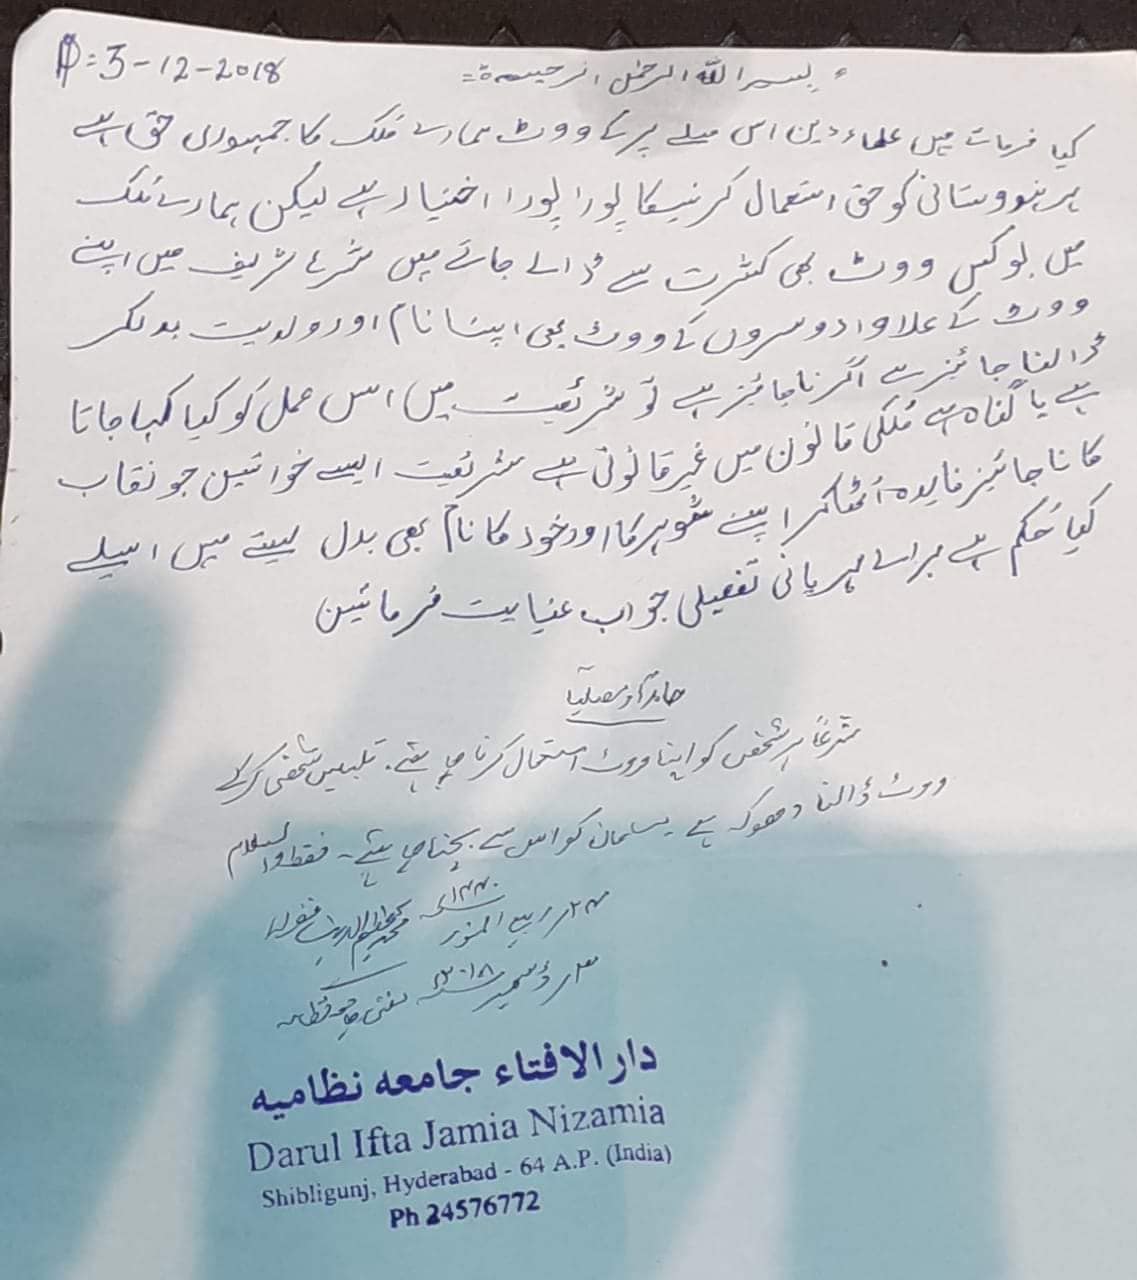 D:=3-12-2018
بسم اللہ الرحمٰن الرحیم
کیا فرماتے ہیں علماء دین اس مسلے پر کے ووٹ ہمارے مُلک کا جمہوری حق ہے
ہر ہندوستانی کو حق استعمال کرنیکا پورا پورا اختیار ہے لیکن ہمارے مُلک
میں بوگس ووٹ بھی کثرت سے ڈالے جاتے ہیں شرع شریف میں اپنے
ووٹ کے علاوا دوسروں کے ووٹ بھی اپنا نام اور ولدیت بدلکر
ڈالنا جائیز ہے اگر ناجائیز ہے تو شریعت میں اس عمل کو کیا کہا جاتا
ہے یا گناہ ہے مُلکی قانون میں غیر قانونی ہے شریعت ایسے خواتین جو نقاب
کا ناجائیز فایدہ اُٹھاکر اپنے شوہر کا اور خود کا نام بھی بدل لیتے ہیں اسلیے
کیا حُکم ہے براے مہربانی تفصیلی جواب عنایت فرمائین
حامداً و مصلیاً
شرعاً ہر شخص کو اپنا ووٹ استعمال کرنا چاہئے۔ تلبیس شخصی کرکے
ووٹ ڈالنا دھوکہ ہے مسلمان کو اس سے بچنا چاہئیے۔ فقط والسلام
۲۴ر ربیع المنور ۱۴۴۰ھ محمد عظیم الدین غفرلہ
۳ر ڈسمبر ۲۰۱۸ مفتی جامعہ نظامیہ
دار الافتاء جامعہ نظامیہ
Darul Ifta Jamia Nizamia
Shibligunj, Hyderabad - 64 A.P. (India)
Ph 24576772